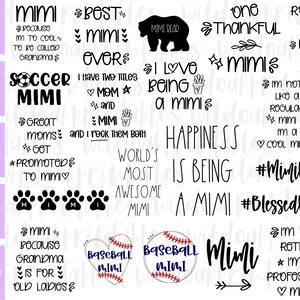 MIMI
BECAUSE
I'M TO COOL
TO BE CALLED
GRANDMA
BEST
MIMI
EVER
MIMI BEAR
ONE
THANKFUL
MIMI
SOCCER
MIMI
I HAVE TWO TITLES
MOM
AND
MIMI
AND I ROCK THEM BOTH
I LOVE
BEING
A MIMI
I'M NOT
LIKE A
REGULA
MIMI I'
A
COOL MI
GREAT
MOMS
GET
PROMOTED
TO MIMI
WORLD'S
MOST
AWESOME
MIMI
HAPPINESS
IS BEING
A MIMI
#Mimili
#Blessed
M I M I
MIMI
BECAUSE
GRANDMA
IS FOR
OLD LADIES
BASEBALL
MIMI
BASEBALL
MIMI
Mimi
I'M
RET
I'M
PROFE
MI